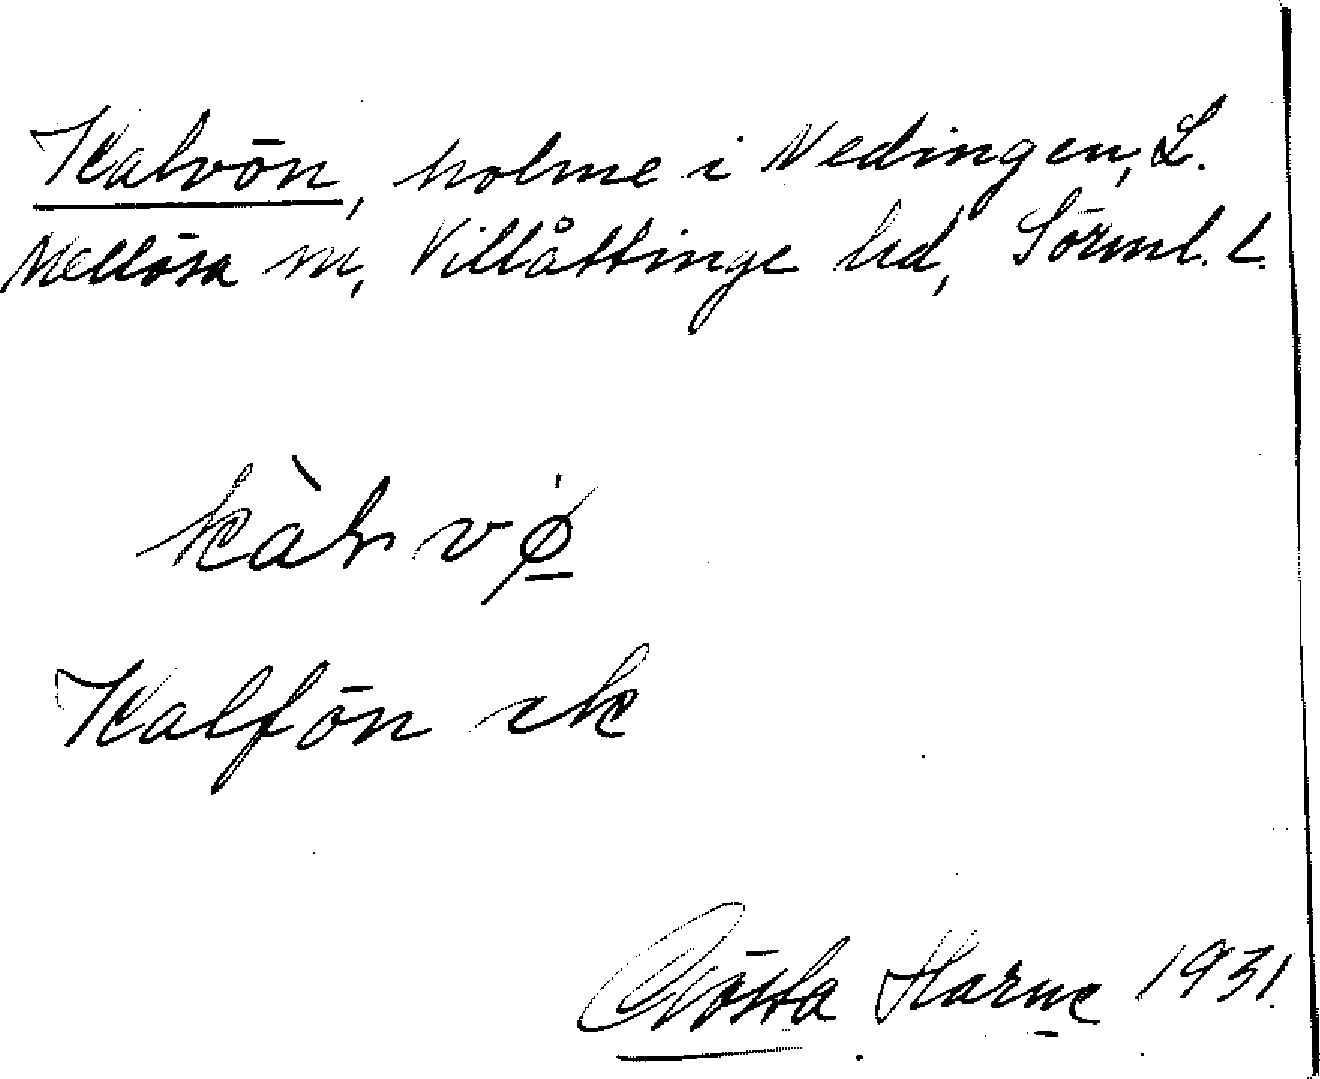 Kalvön, holme i Nedingen, L.
Mellösa sn, Villåttinge hd, Sörml. l.
kàlvø
Kalfön ek
Gösta Harne 1931.